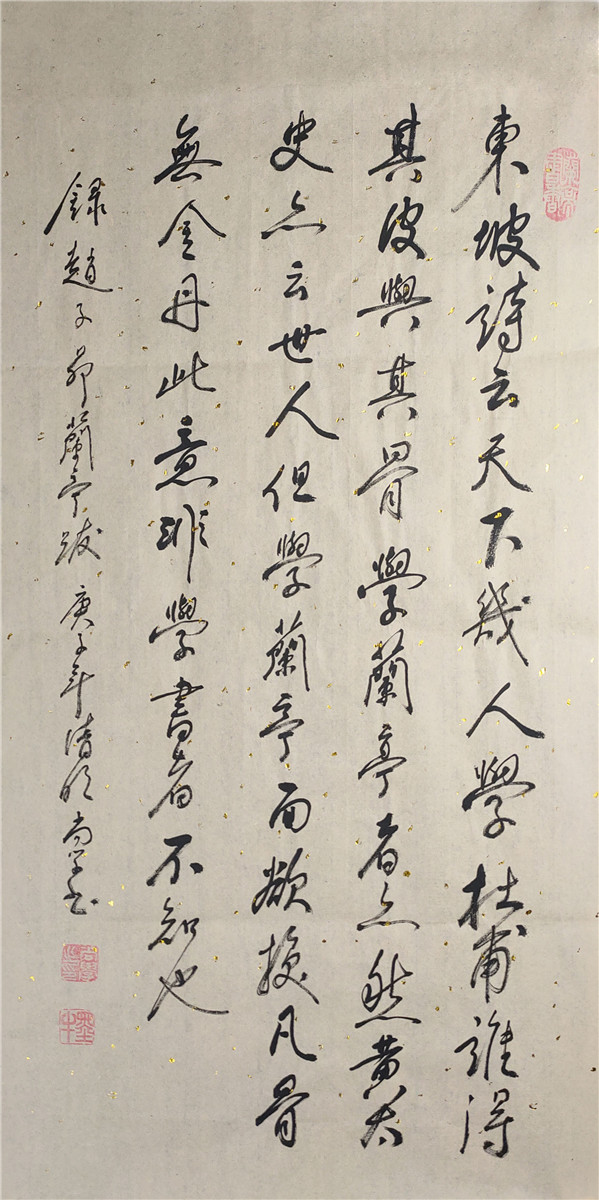 東坡詩云天下幾人學杜甫誰得
其皮與其骨學蘭亭者亦然黄太
史亦云世人但學蘭亭面欲换凡骨
無金丹此意非學書者不知也
錄趙子昴蘭亭跋庚子年清明尚學書